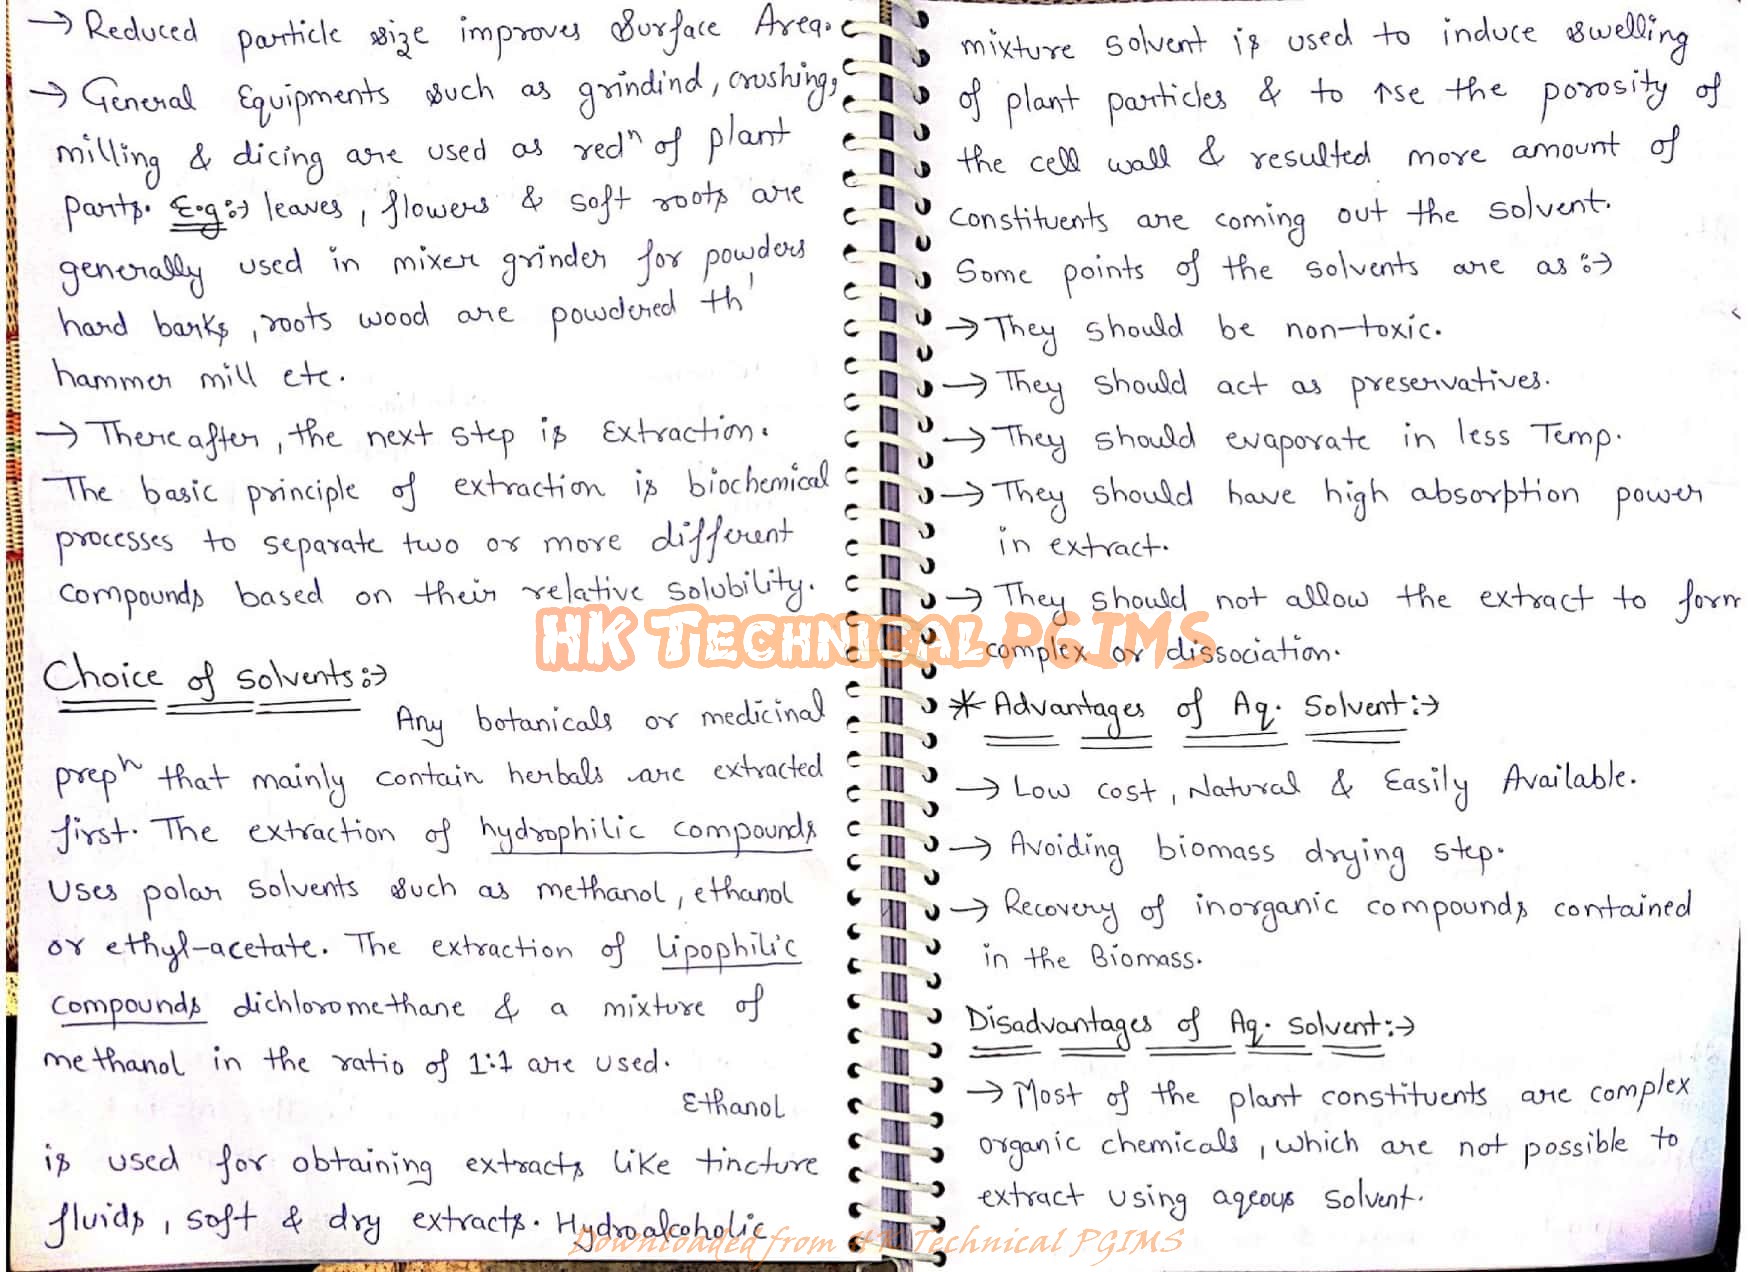 → Reduced particle size improves Surface Area.
→ General Equipments such as grindind, crushing,
milling & dicing are used as redⁿ of plant
parts. E.g:→ leaves, flowers & soft roots are
generally used in mixer grinder for powders
hard barks, roots wood are powdered th'
hammer mill etc.
→ Thereafter, the next step is Extraction.
The basic principle of extraction is biochemical
processes to separate two or more different
compounds based on their relative solubility.
Choice of solvents:→
Any botanicals or medicinal
prepⁿ that mainly contain herbals are extracted
first. The extraction of hydrophilic compounds
uses polar solvents such as methanol, ethanol
or ethyl-acetate. The extraction of lipophilic
compounds dichloromethane & a mixture of
methanol in the ratio of 1:1 are used.
Ethanol
is used for obtaining extracts like tincture
fluids, soft & dry extracts. Hydroalcoholic
mixture solvent is used to induce swelling
of plant particles & to ↑se the porosity of
the cell wall & resulted more amount of
constituents are coming out the solvent.
Some points of the solvents are as:→
→ They should be non-toxic.
→ They should act as preservatives.
→ They should evaporate in less Temp.
→ They should have high absorption power
in extract.
→ They should not allow the extract to form
complex or dissociation.
* Advantages of Aq. Solvent:→
→ Low cost, Natural & Easily Available.
→ Avoiding biomass drying step.
→ Recovery of inorganic compounds contained
in the Biomass.
Disadvantages of Aq. solvent:→
→ Most of the plant constituents are complex
organic chemicals, which are not possible to
extract using aqeous solvent.
HK Technical PGIMS
Downloaded from HK Technical PGIMS